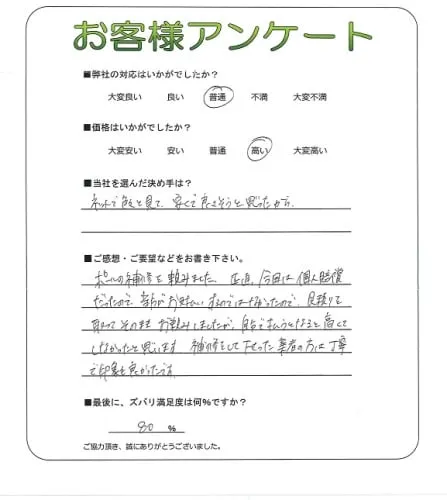 お客様アンケート
■弊社の対応はいかがでしたか？
大変良い 良い 普通 不満 大変不満
■価格はいかがでしたか？
大変安い 安い 普通 高い 大変高い
■当社を選んだ決め手は？
ネットで を見て、安くて良さそうと思ったから。
■ご感想・ご要望などをお書き下さい。
ポールの補修を頼みました。正直、今回は個人賠償
だったので、 お支払いするのではなかったので、見積りを
取ってそのままお頼みしましたが、自分で払うとなると高くて
しなかったと思います 補修をして下さった業者の方は丁寧
で印象も良かったです。
■最後に、ズバリ満足度は何%ですか？
80 %
ご協力頂き、誠にありがとうございました。